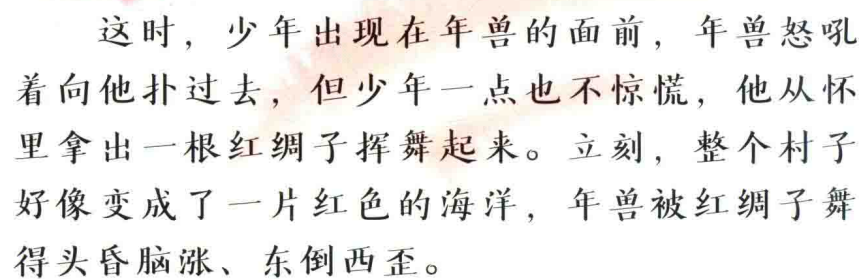 这时，少年出现在年兽的面前，年兽怒吼
着向他扑过去，但少年一点也不惊慌，他从怀
里拿出一根红绸子挥舞起来。立刻，整个村子
好像变成了一片红色的海洋，年兽被红绸子舞
得头昏脑涨、东倒西歪。